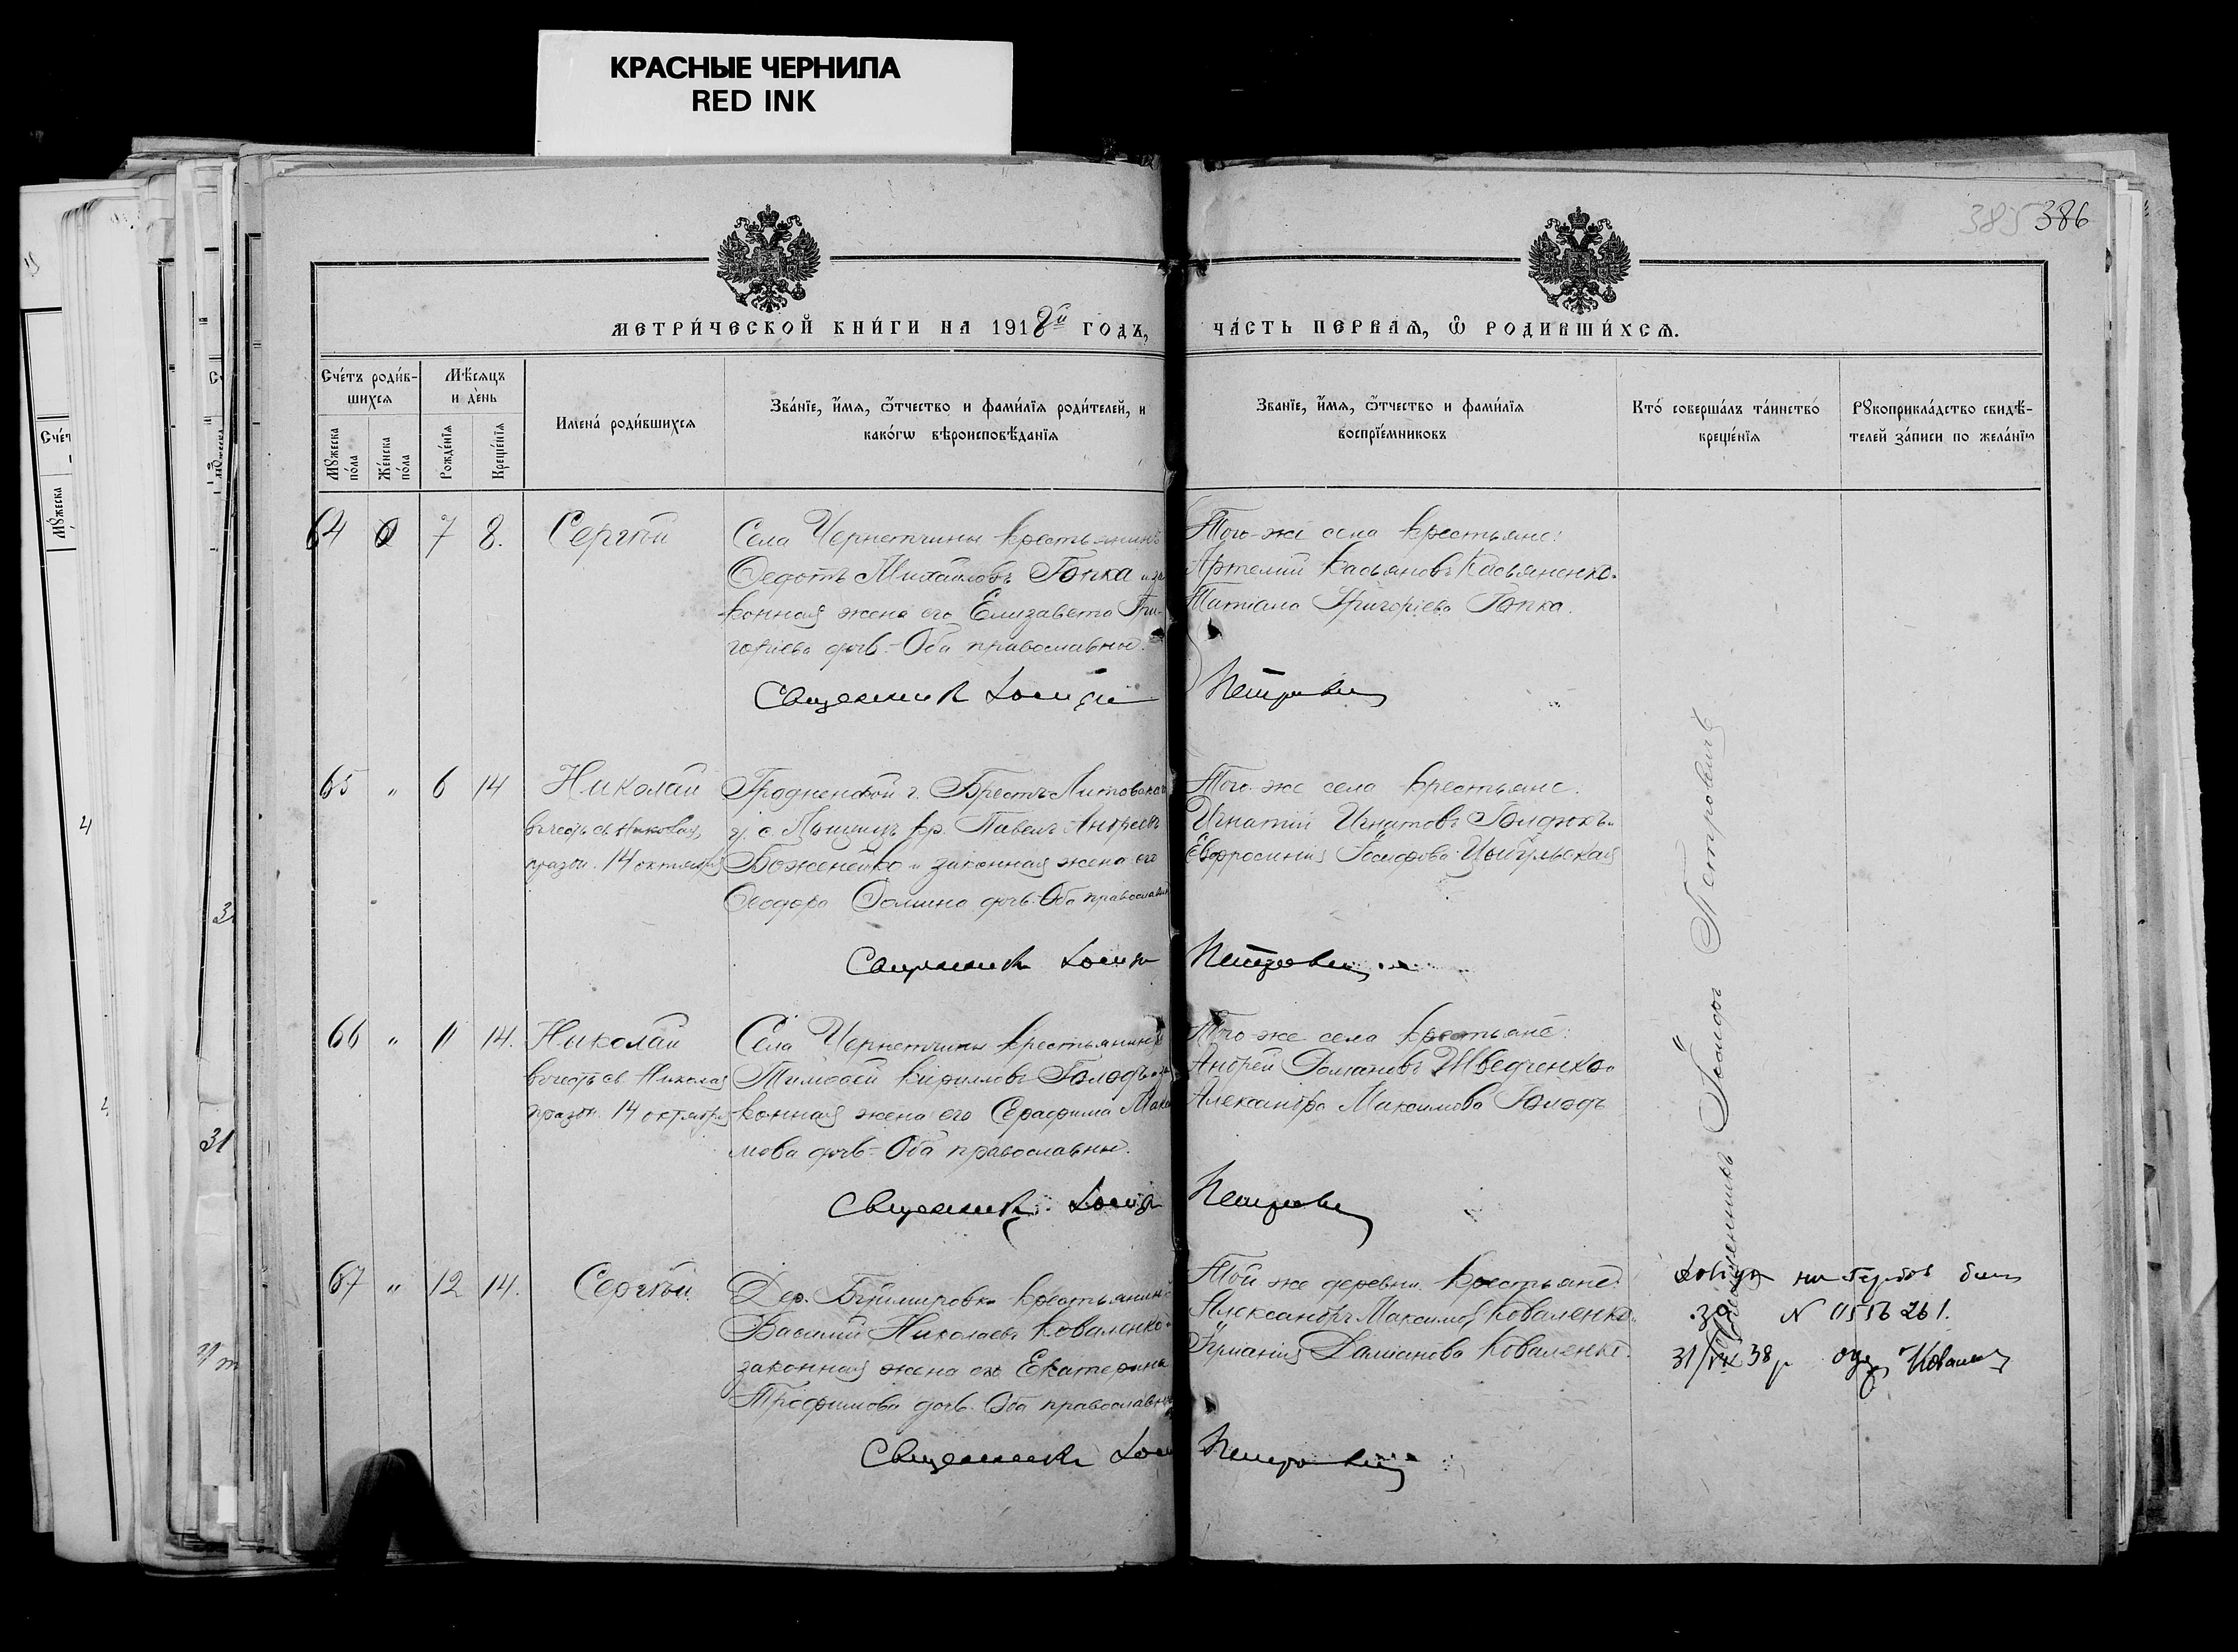 КРАСНЫЕ ЧЕРНИЛА
RED INK
386
МЕТРИ́ЧЕСКОЙ КНИ́ГИ НА 1918 ГОДЪ, ЧА́СТЬ ПЕРВАѦ, Ѡ РОДИВШИ́ХСѦ.
Сче́тъ роди́в-
шихсѧ
Мꙋжеска по́ла
Же́нска по́ла
Мѣ́сѧцъ и де́нь
Рожде́нїѧ
Креще́нїѧ
Имена́ роди́вшихсѧ
Зва́нїе, и́мѧ, ѻ҆́тчество и фами́лїѧ роди́телей, и
како́гѡ вѣроисповѣ́данїѧ
Зва́нїе, и́мѧ, ѻ҆́тчество и фами́лїѧ
воспрїе́мниковъ
Кто́ соверша́лъ та́инство
креще́нїѧ
Рꙋкоприкла́дство свидѣ́-
телей за́писи по жела́нїю
64 0 7 8. Сергѣй
Села Чернетчины крестьянинъ
Ѳедотъ Михайловъ Гопка и за
конная жена его Елизавета Гри-
горiева дочь. Оба православные.
Того-же села крестьяне:
Артемий Касьяновъ Касьяненко.
Татiана Григорiева Гопка.
Священник Петрович
65 " 6 14 Николай
въ честь св. Николая
празд. 14 октября
Гродненской г. Брестъ-Литовскаго
у. с. кр. Павелъ Андреевъ
Боженейко и законная жена его
Ѳеодора Ѳомина дочь. Оба православные
Того-же села крестьяне.
Игнатий Игнатовъ
Евфросинiя Iосифова
Священник Петрович
66 " 11 14. Николай
въ честь св. Николая
празд. 14 октября
Села Чернетчины крестьянинъ
Тимоѳей Кириловъ Голодъ и за
конная жена его Серафима Макси
мова дочь. Оба православные.
Того-же села крестьяне:
Андрей Романовъ Шведченко.
Александра Максимова Голодъ
Священник Петрович
67 " 12 14. Сергѣй
Дер. крестьянинъ
Василий Николаевъ Коваленко и
законная жена его Екатерина
Трофимова дочь. Оба православные
Той же деревни крестьяне:
Александръ Максимовъ Коваленко.
Дамiанова Коваленко.
Священник Петрович
Священникъ Iосифъ Петровичъ